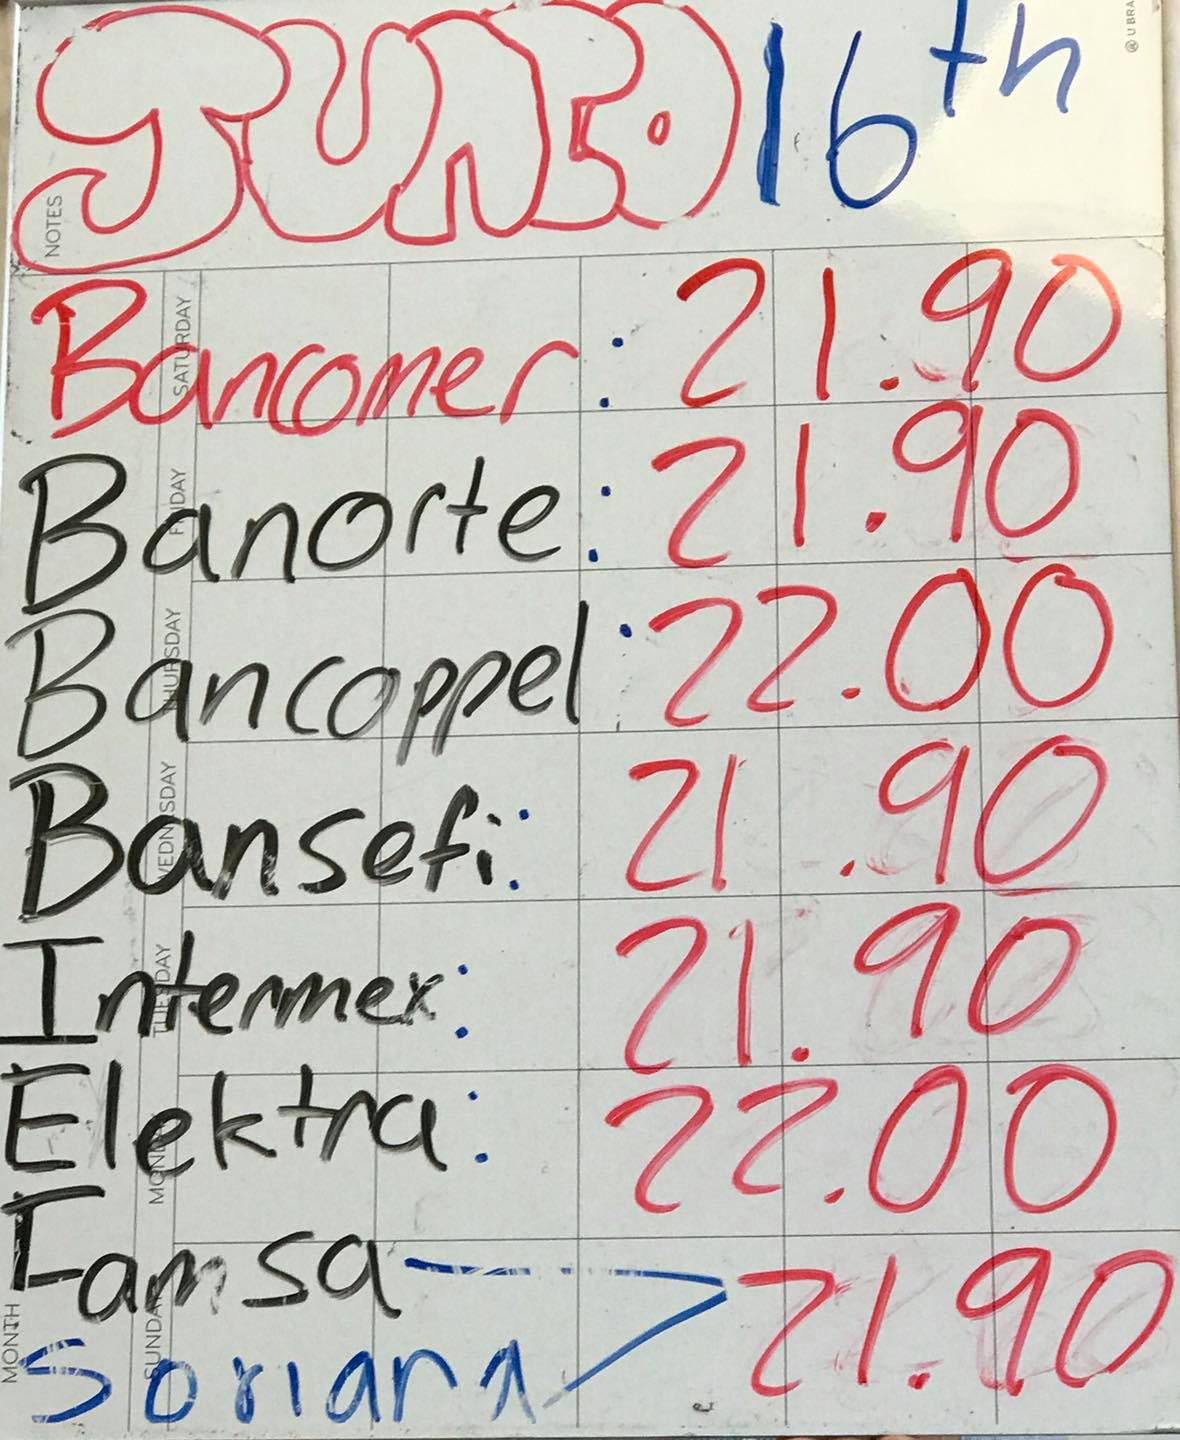 JUNIO 16th
@UBRA
NOTES
Bancomer: 21.90
SATURDAY
Banorte: 21.90
FRIDAY
Bancoppel: 22.00
THURSDAY
Bansefi: 21.90
WEDNESDAY
Intermex: 21.90
TUESDAY
Elektra: 22.00
MONDAY
Famsa 21.90
Soriana
SUNDAY
MONTH